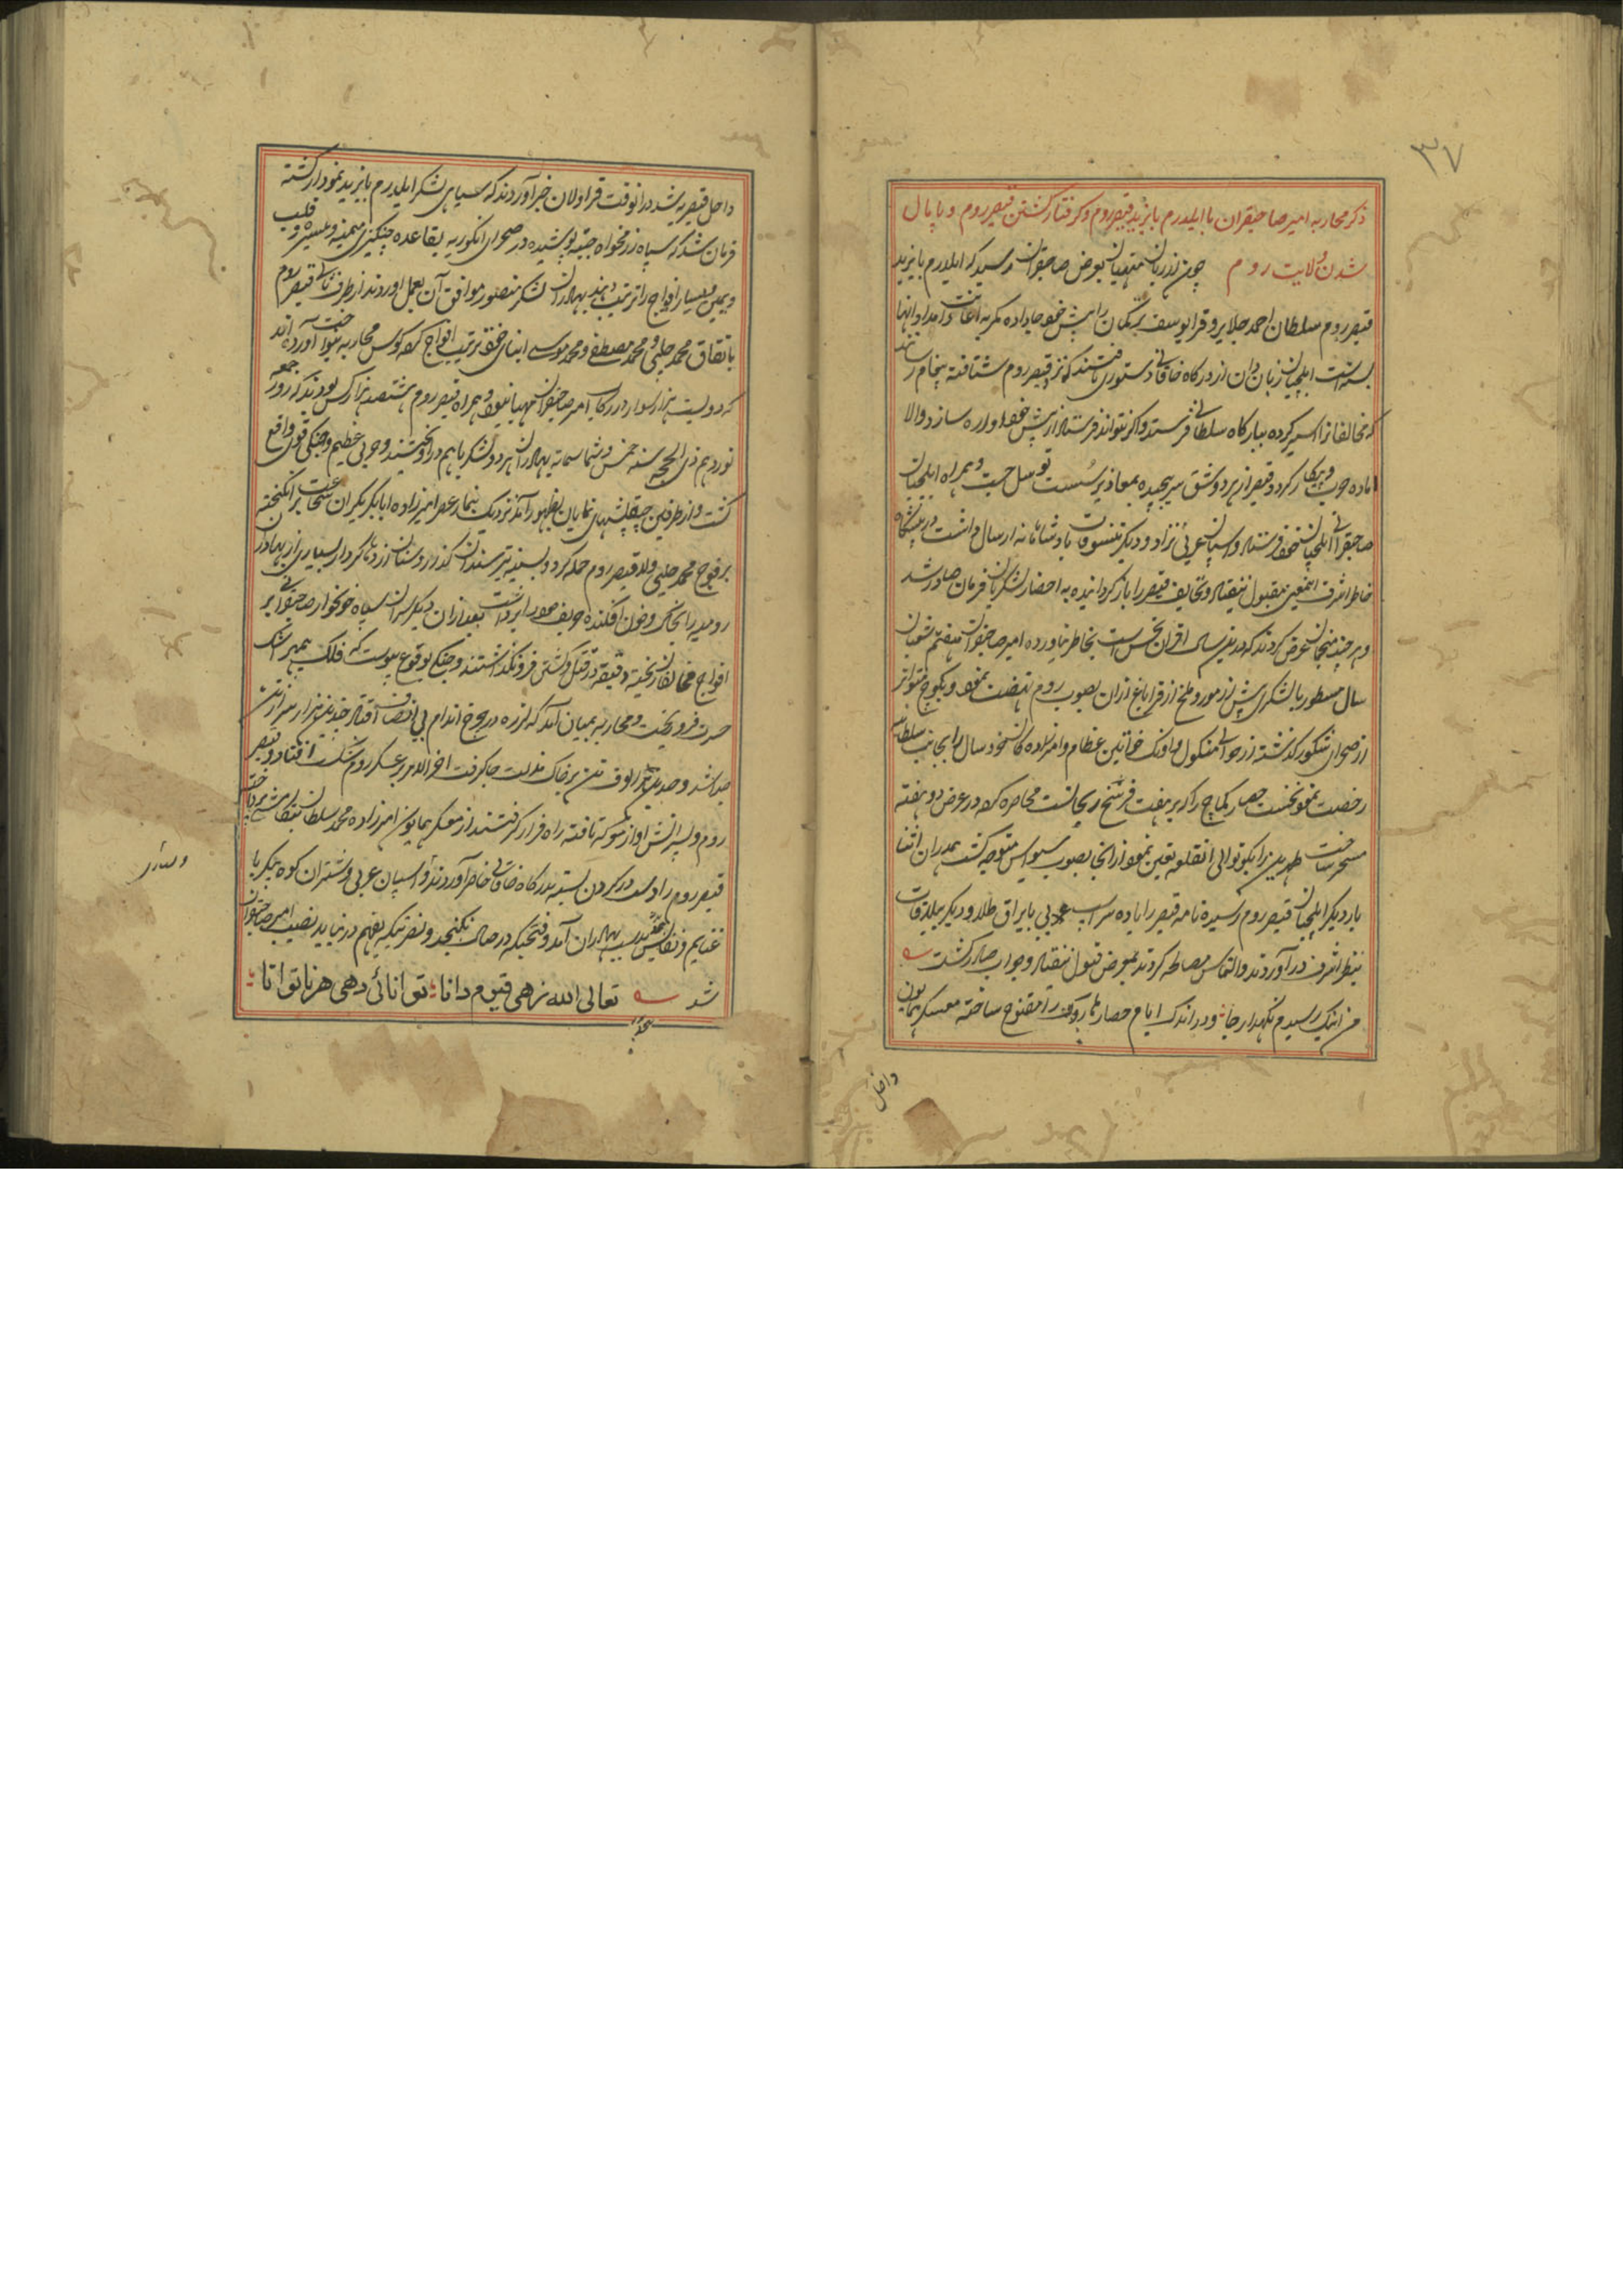 ۳۷
ذکر محاربه امیر صاحبقران با ایلدرم بایزید قیصر روم و کرفتار کشتن قیصر روم و پایمال
شدن ولایت روم چون از زبان منهیان بعرض صاحبقران رسید که ایلدرم بایزید
قیصر روم سلطان احمد جلایر و قرا یوسف ترکمان را پیش خود جا داده کمر به اعانت و امداد انها
بسته است ایلچیان زبان دان از درکاه خاقانی دستوری یافتند که نزد قیصر روم شتافته پیغام رسانند
که مخالفانرا اسیر کرده ببارکاه سلطانی فرستد و اکر نتواند فرستاد از پیش خود اواره سازد والا
اماده حرب و پیکار کردد قیصر از هر دو شق سر پیچیده بمعاذیر سست توسل جست و همراه ایلچیان
صاحبقرانی ایلچیان خود فرستاد و اسپان عربی نژاد و دیکر تنسوقات پادشاهانه ارسال داشت در پیشکاه
خاطر اشرف اینمعنی مقبول نیفتاد و تحایف قیصر را باز کردانیده به احضار لشکریان فرمان صادر شد
و هر چند منجمان عرض کردند که درین سال اقران نحس است بخاطر نیاورده امیر صاحبقران هفتم شعبان
سال مسطور با لشکری بیش از مور و ملخ از قراباغ اران بصوب روم نهضت نمود و بکوچ متواتر
از صحرای شکور کذشته از حوالی منکول و اونک خواتین عظام و امیرزاده های خورد سال را بجانب سلطانیه
رخصت نمود نخست حصار کماخ را که بر هفت فرسخ ارزنجانست محاصره کرد در عرض دو هفته
مسخر ساخت طهرتن را بکوتوالی انقلعه تعین نمود از انجا بصوب سیواس متوجه کشت همدران اثنا
بار دیکر ایلچیان قیصر روم رسیده نامه قیصر را با ده سر اسپ عربی با یراق طلا و دیکر بیلاقات
بنظر اشرف در آوردند و التماس مصالحه کردند بمعرض قبول نیفتاد و جواب صادر کشت
من اینک رسیدم نکهدار جا و در اندک ایام حصار هاروک را مفتوح ساخته معسکر همایون
داخل
داخل قیصریه شد در انوقت قراولان خبر آوردند که سیاهی لشکر ایلدرم بایزید نمودار کشته
فرمان شد که سپاه رزمخواه جیبه پوشیده در صحرای انکوریه بقاعده چنکیزی میمنه و میسره و قلب
و یمین و یسار افواج را ترتیب دهند بهادران لشکر منصور موافق آن بعمل اوردند از طرف ثانی قیصر روم
باتفاق محمد چلبی و محمد مصطفی و محمد موسی ابنای خود ترتیب افواج کرده کوس محاربه بنواخت آورده اند
که دویست هزار سوار در رکاب امیر صاحبقران مهیا بود و همراه قیصر روم هشتصد هزار کس بودند که روز جمعه
نوزدهم ذی الحجه سنه خمس و ثمانمایه بهادران هر دو لشکر با هم در اویختند و حربی عظیم و جنکی قوی واقع
کشت و از طرفین چپقلشهای نمایان بظهور آمد نزدیک بنماز عصر امیرزاده ابابکر یکران شجاعت برانکیخته
بر فوج محمد چلبی ولد قیصر روم حمله کرد و بسینه تیر سندان کذر و سنان اژدها کردار بسیاری از بهادران
رومیه را بخاک و خون افکنده حریف خود را برداشت بعد ازان دیکر سران سپاه خونخوار صاحبقرانی بر
افواج مخالفان ریخته دقیقه در قتل و کشش فرونکذاشتند و جنکی بوقوع پیوست که فلک پیر اشک
حسرت فرو ریخت و محاربه بمیان آمد که لرزه در چرخ اندام افتاد چندین هزار سر از تن
جدا شد و چندین الوف تن بر خاک مذلت جا کرفت اخر الامر بر عسکر روم شکست افتاد و قیصر
روم و پسرانش او از معرکه تافته راه فرار کرفتند از معسکر همایون امیرزاده محمد سلطان بتعاقب پرداخته
قیصر روم را دست در کردن بسته بدرکاه خاقانی حاضر آوردند و اسپان عربی و شتران کوه پیکر با
غنایم و نفایس بدست بهادران آمد و فتحیکه در حساب نکنجد و نصرتیکه بفهم در نیاید نصیب امیر صاحبقران
شد تعالی الله زهی قیوم دانا توانائی دهی هر ناتوانا